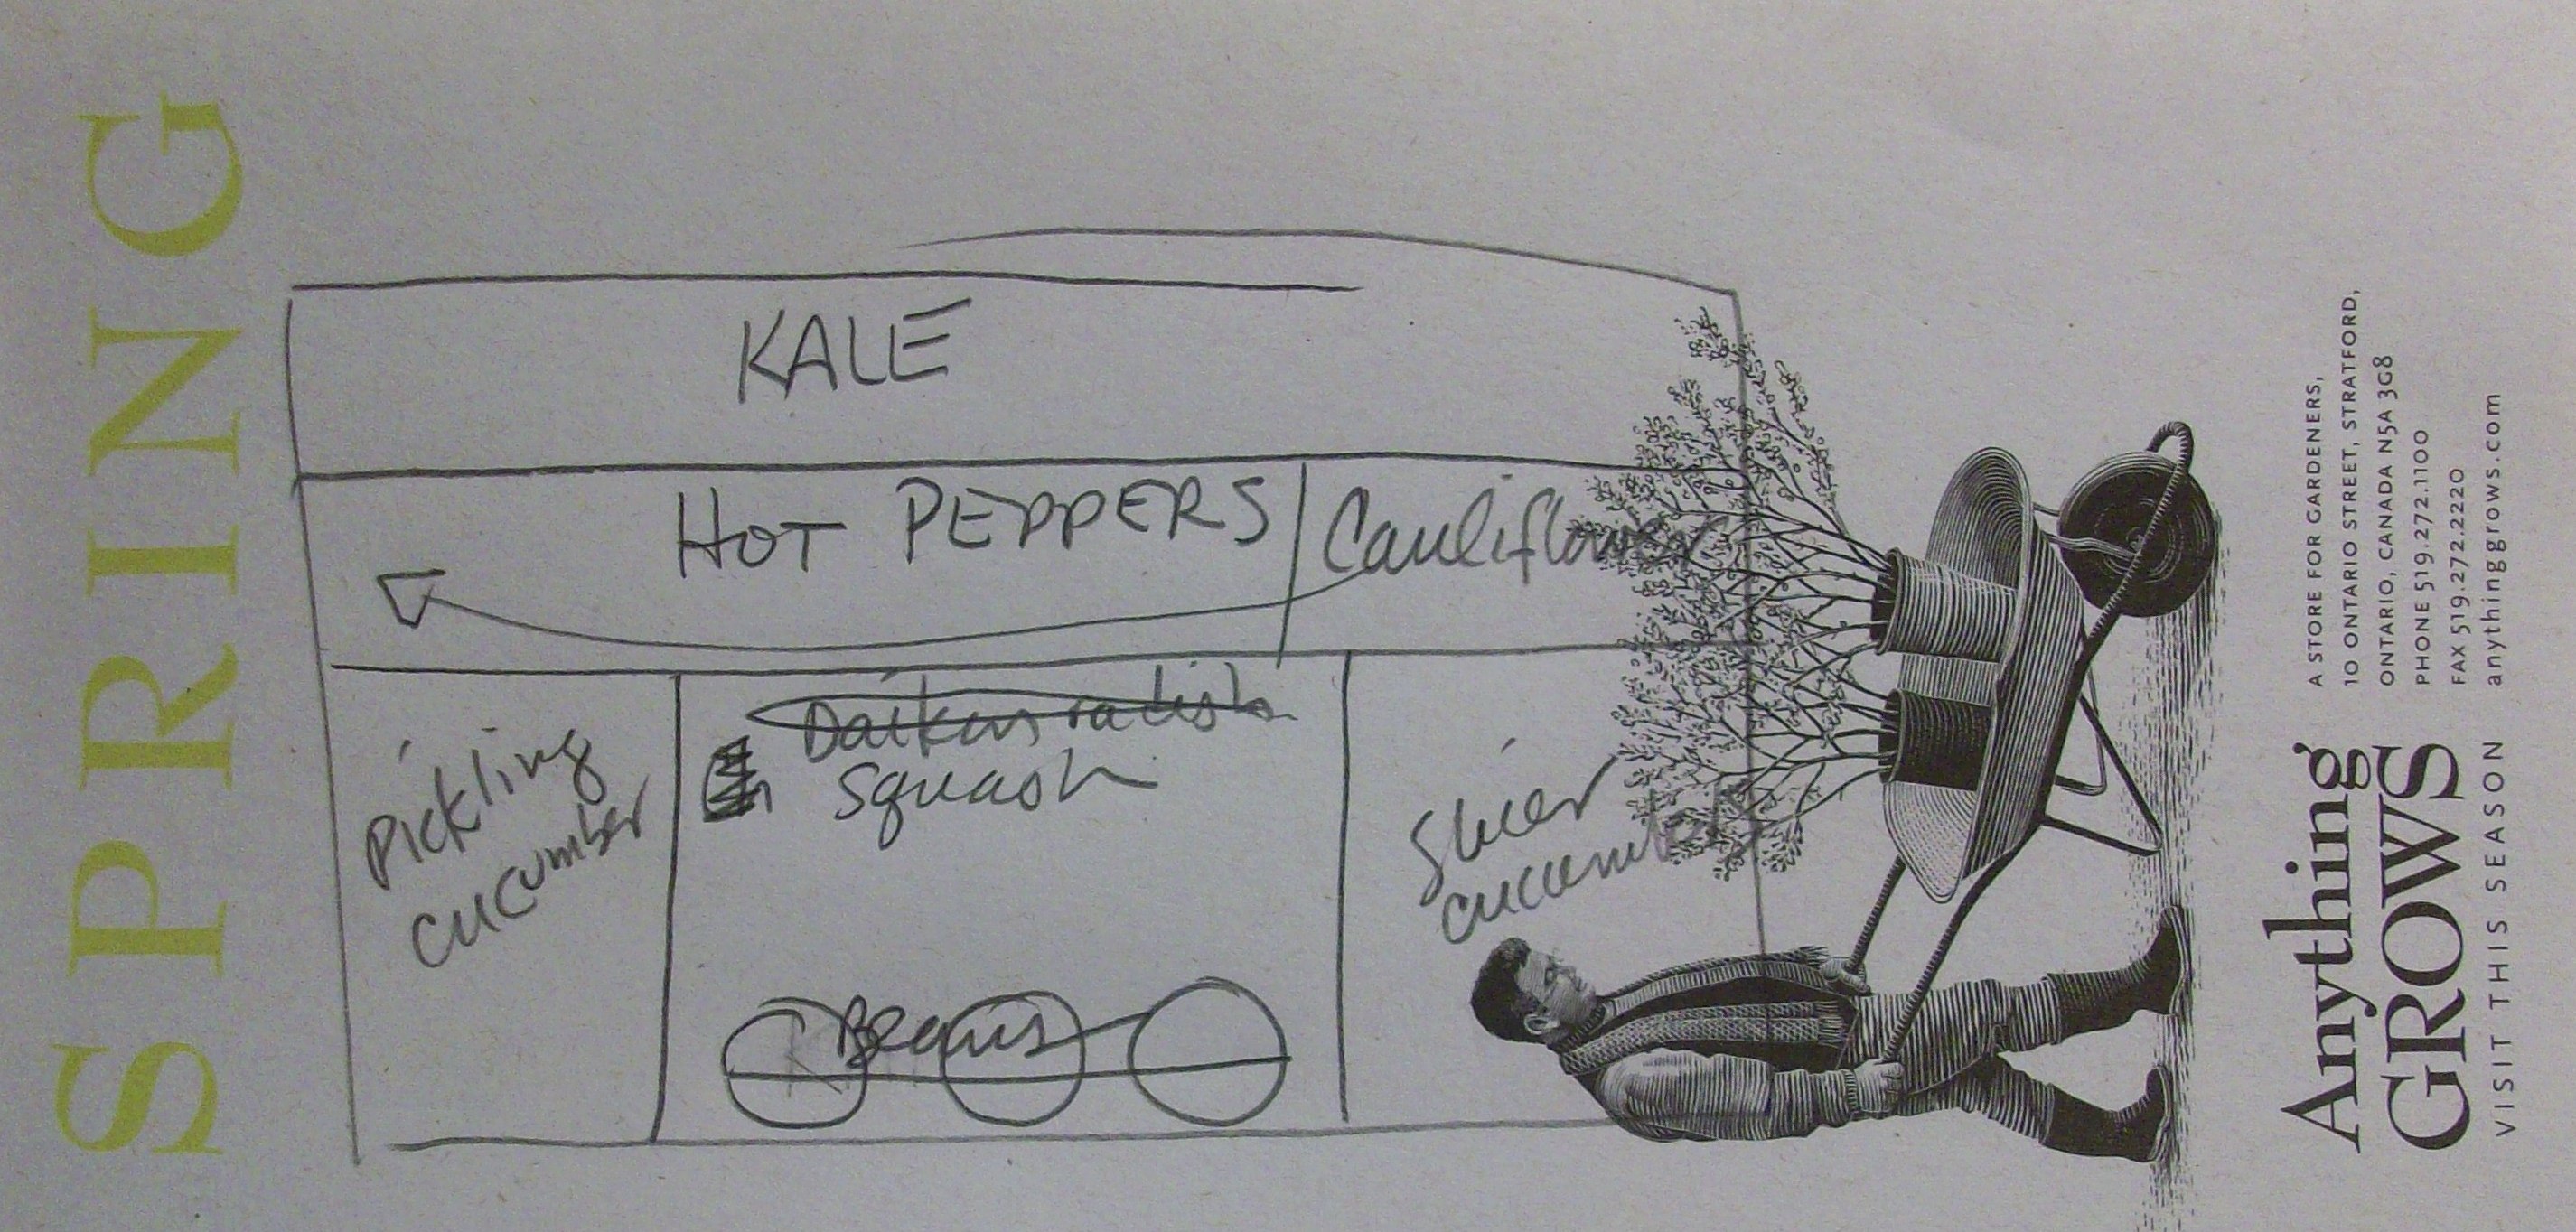 SPRING
KALE
HOT PEPPERS
Cauliflower
Pickling
cucumber
Daikon radish
Squash
Beans
Slicer
cucumber
A STORE FOR GARDENERS,
10 ONTARIO STREET, STRATFORD,
ONTARIO, CANADA N5A 3G8
PHONE 519.272.1100
FAX 519.272.2220
anythinggrows.com
Anything
GROWS
VISIT THIS SEASON